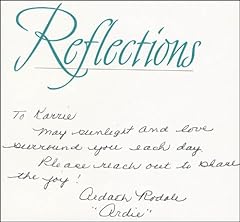 Reflections
To Karrie
May sunlight and love
surround you each day
Please reach out to share
the joy!
Ardath Rodale
"Ardie"